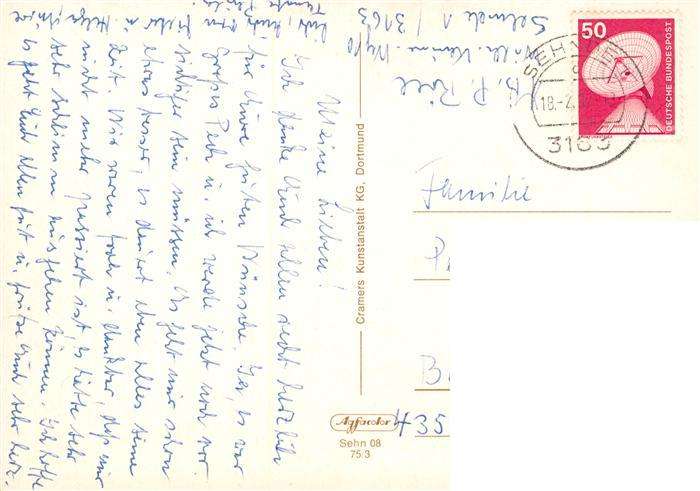 Meine Lieben!
Ich danke Euch allen recht herzlich
für Eure guten Wünsche. Ja, es war
großes Pech u. ich werde jetzt noch vor-
sichtiger sein müssen. Es geht mir schon
etwas besser, es dauert eben alles seine
Zeit. Wir waren froh u. dankbar, daß mir
nicht mehr passiert ist, es hätte sehr
sehr schlimm ausgehen können. Ich hoffe
es geht Euch allen gut u. grüße Euch sehr herz-
Cramers Kunstanstalt KG, Dortmund
Agfacolor
Sehn 08
75:3
Sehnde 1 / 3163
50
DEUTSCHE BUNDESPOST
SEHNDE
18.-2.
3163
Familie
P
B
435